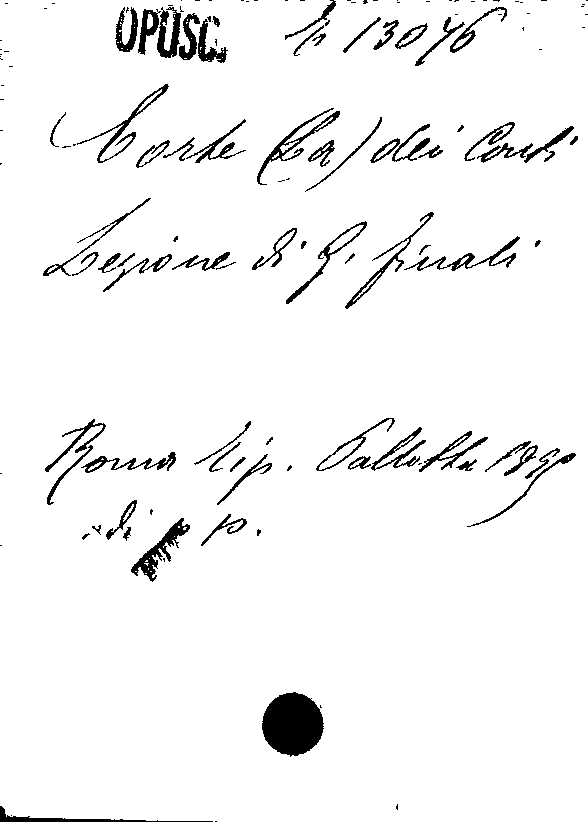 OPUSC. 13046
Corte (La) dei Conti
Lezione di G. Finali
Roma tip. Pallotta 1890
di p.